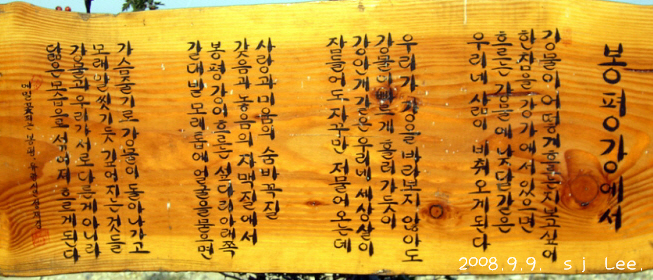 봉평강에서
강물이 어떻게 흐르는지 보고싶어
한참을 강가에 서 있으면
흐르는 강물에 낮달같은
우리네 삶이 비춰 오게 된다
우리가 강을 바라보지 않아도
강물이 빠르게 흘러가듯이
강안에 갇힌 우리네 세상살이
잠들어도 자꾸만 저물어 오는데
사랑과 미움의 숨바꼭질
갖음과 놓음의 자맥질에서
봉평강이 흐르는 섶다리 아래쪽
갈대밭 모래톱에 얼굴을 묻으면
가슴 줄기로 강물이 돌아 나가고
모래밭 씻기듯 깊어지는 것들
강물과 우리가 서로 다른게 아니라
닮은 섞여 흐르게 된다
2008.9.9. sj Lee.